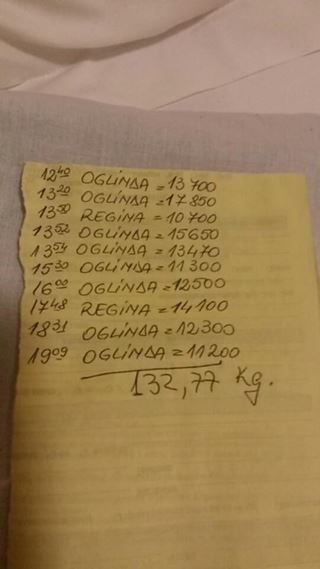 12⁴⁰ OGLINDA = 13700
13²⁰ OGLINDA = 17850
13⁵⁰ REGINA = 10700
13⁵² OGLINDA = 15650
13⁵⁴ OGLINDA = 13470
15³⁰ OGLINDA = 11300
16⁰⁰ OGLINDA = 12500
17⁴⁸ REGINA = 14100
18³¹ OGLINDA = 12300
19⁰⁹ OGLINDA = 11200
132,77 Kg.